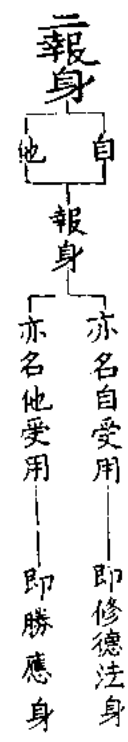 二報身
自
他
報身
亦名自受用——即修德法身
亦名他受用——即勝應身